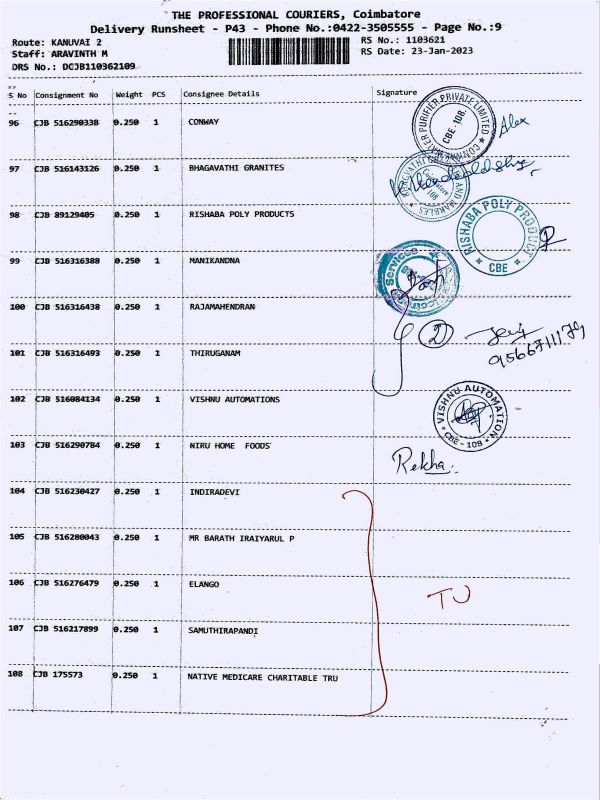 THE PROFESSIONAL COURIERS, Coimbatore
Delivery Runsheet - P43 - Phone No.:0422-3505555 - Page No.:9
Route: KANUVAI 2
RS No.: 1103621
Staff: ARAVINTH M
RS Date: 23-Jan-2023
DRS No.: DCJB110362109
S No Consignment No Weight PCS Consignee Details Signature
96 CJB 516290338 0.250 1 CONWAY
WATER PURIFIER PRIVATE LIMITED CBE - 108. Alex
97 CJB 516143126 0.250 1 BHAGAVATHI GRANITES
AND MARBLES
98 CJB 89129405 0.250 1 RISHABA POLY PRODUCTS
RISHABA POLY PRODUCT * CBE *
99 CJB 516316388 0.250 1 MANIKANDNA
Services
100 CJB 516316438 0.250 1 RAJAMAHENDRAN
2
9566711179
101 CJB 516316493 0.250 1 THIRUGANAM
102 CJB 516084134 0.250 1 VISHNU AUTOMATIONS
VISHNU AUTOMATION * CBE - 108 *
103 CJB 516290784 0.250 1 NIRU HOME FOODS
Rekha
104 CJB 516230427 0.250 1 INDIRADEVI
105 CJB 516280043 0.250 1 MR BARATH IRAIYARUL P
106 CJB 516276479 0.250 1 ELANGO
107 CJB 516217899 0.250 1 SAMUTHIRAPANDI
108 CJB 175573 0.250 1 NATIVE MEDICARE CHARITABLE TRU